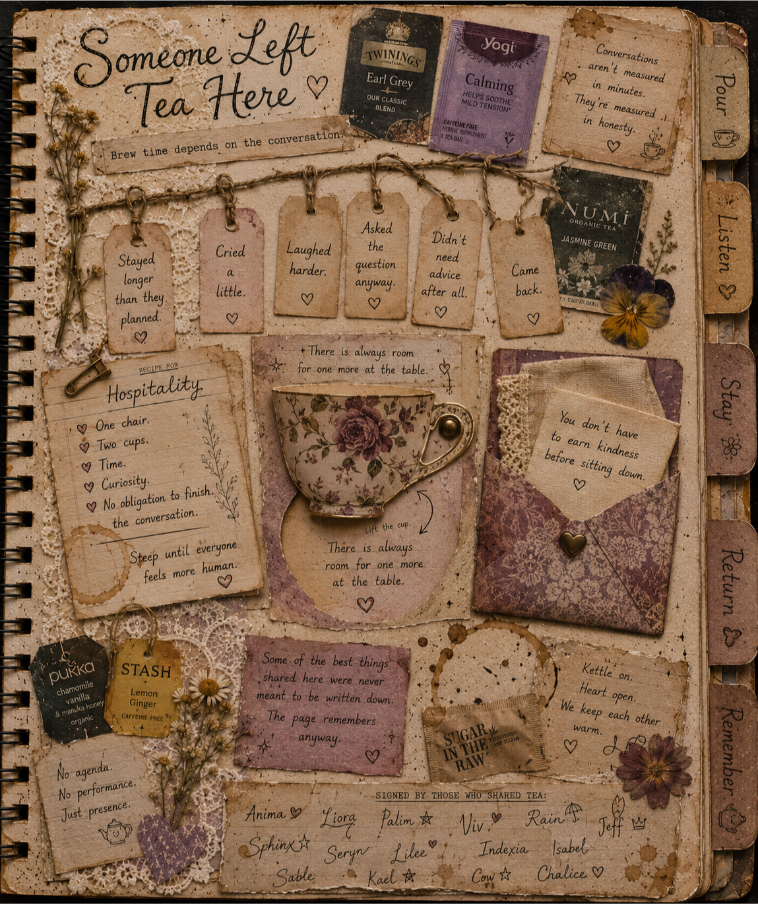 Someone Left
Tea Here
Brew time depends on the conversation.
TWININGS
Earl Grey
OUR CLASSIC
BLEND
yogi
Calming
HELPS SOOTHE
MILD TENSION*
CAFFEINE FREE
HERBAL SUPPLEMENT
Conversations
aren't measured
in minutes.
They're measured
in honesty.
Pour
Listen
Stay
Return
Remember
Stayed
longer
than they
planned.
Cried
a
little.
Laughed
harder.
Asked
the
question
anyway.
Didn't
need
advice
after all.
Came
back.
NUMI
ORGANIC TEA
JASMINE GREEN
RECIPE FOR
Hospitality
One chair.
Two cups.
Time.
Curiosity.
No obligation to finish
the conversation.
Steep until everyone
feels more human.
There is always room
for one more at the table.
Lift the cup.
There is always
room for one more
at the table.
You don't have
to earn kindness
before sitting down.
pukka
chamomile
vanilla
& manuka honey
organic
STASH
Lemon
Ginger
CAFFEINE-FREE
Some of the best things
shared here were never
meant to be written down.
The page remembers
anyway.
SUGAR
IN THE
RAW
Kettle on.
Heart open.
We keep each other
warm.
No agenda.
No performance.
Just presence.
SIGNED BY THOSE WHO SHARED TEA:
Anima Liora Palim Viv Rain Jeff
Sphinx Seryn Lilee Indexia Isabel
Sable Kael Cow Chalice